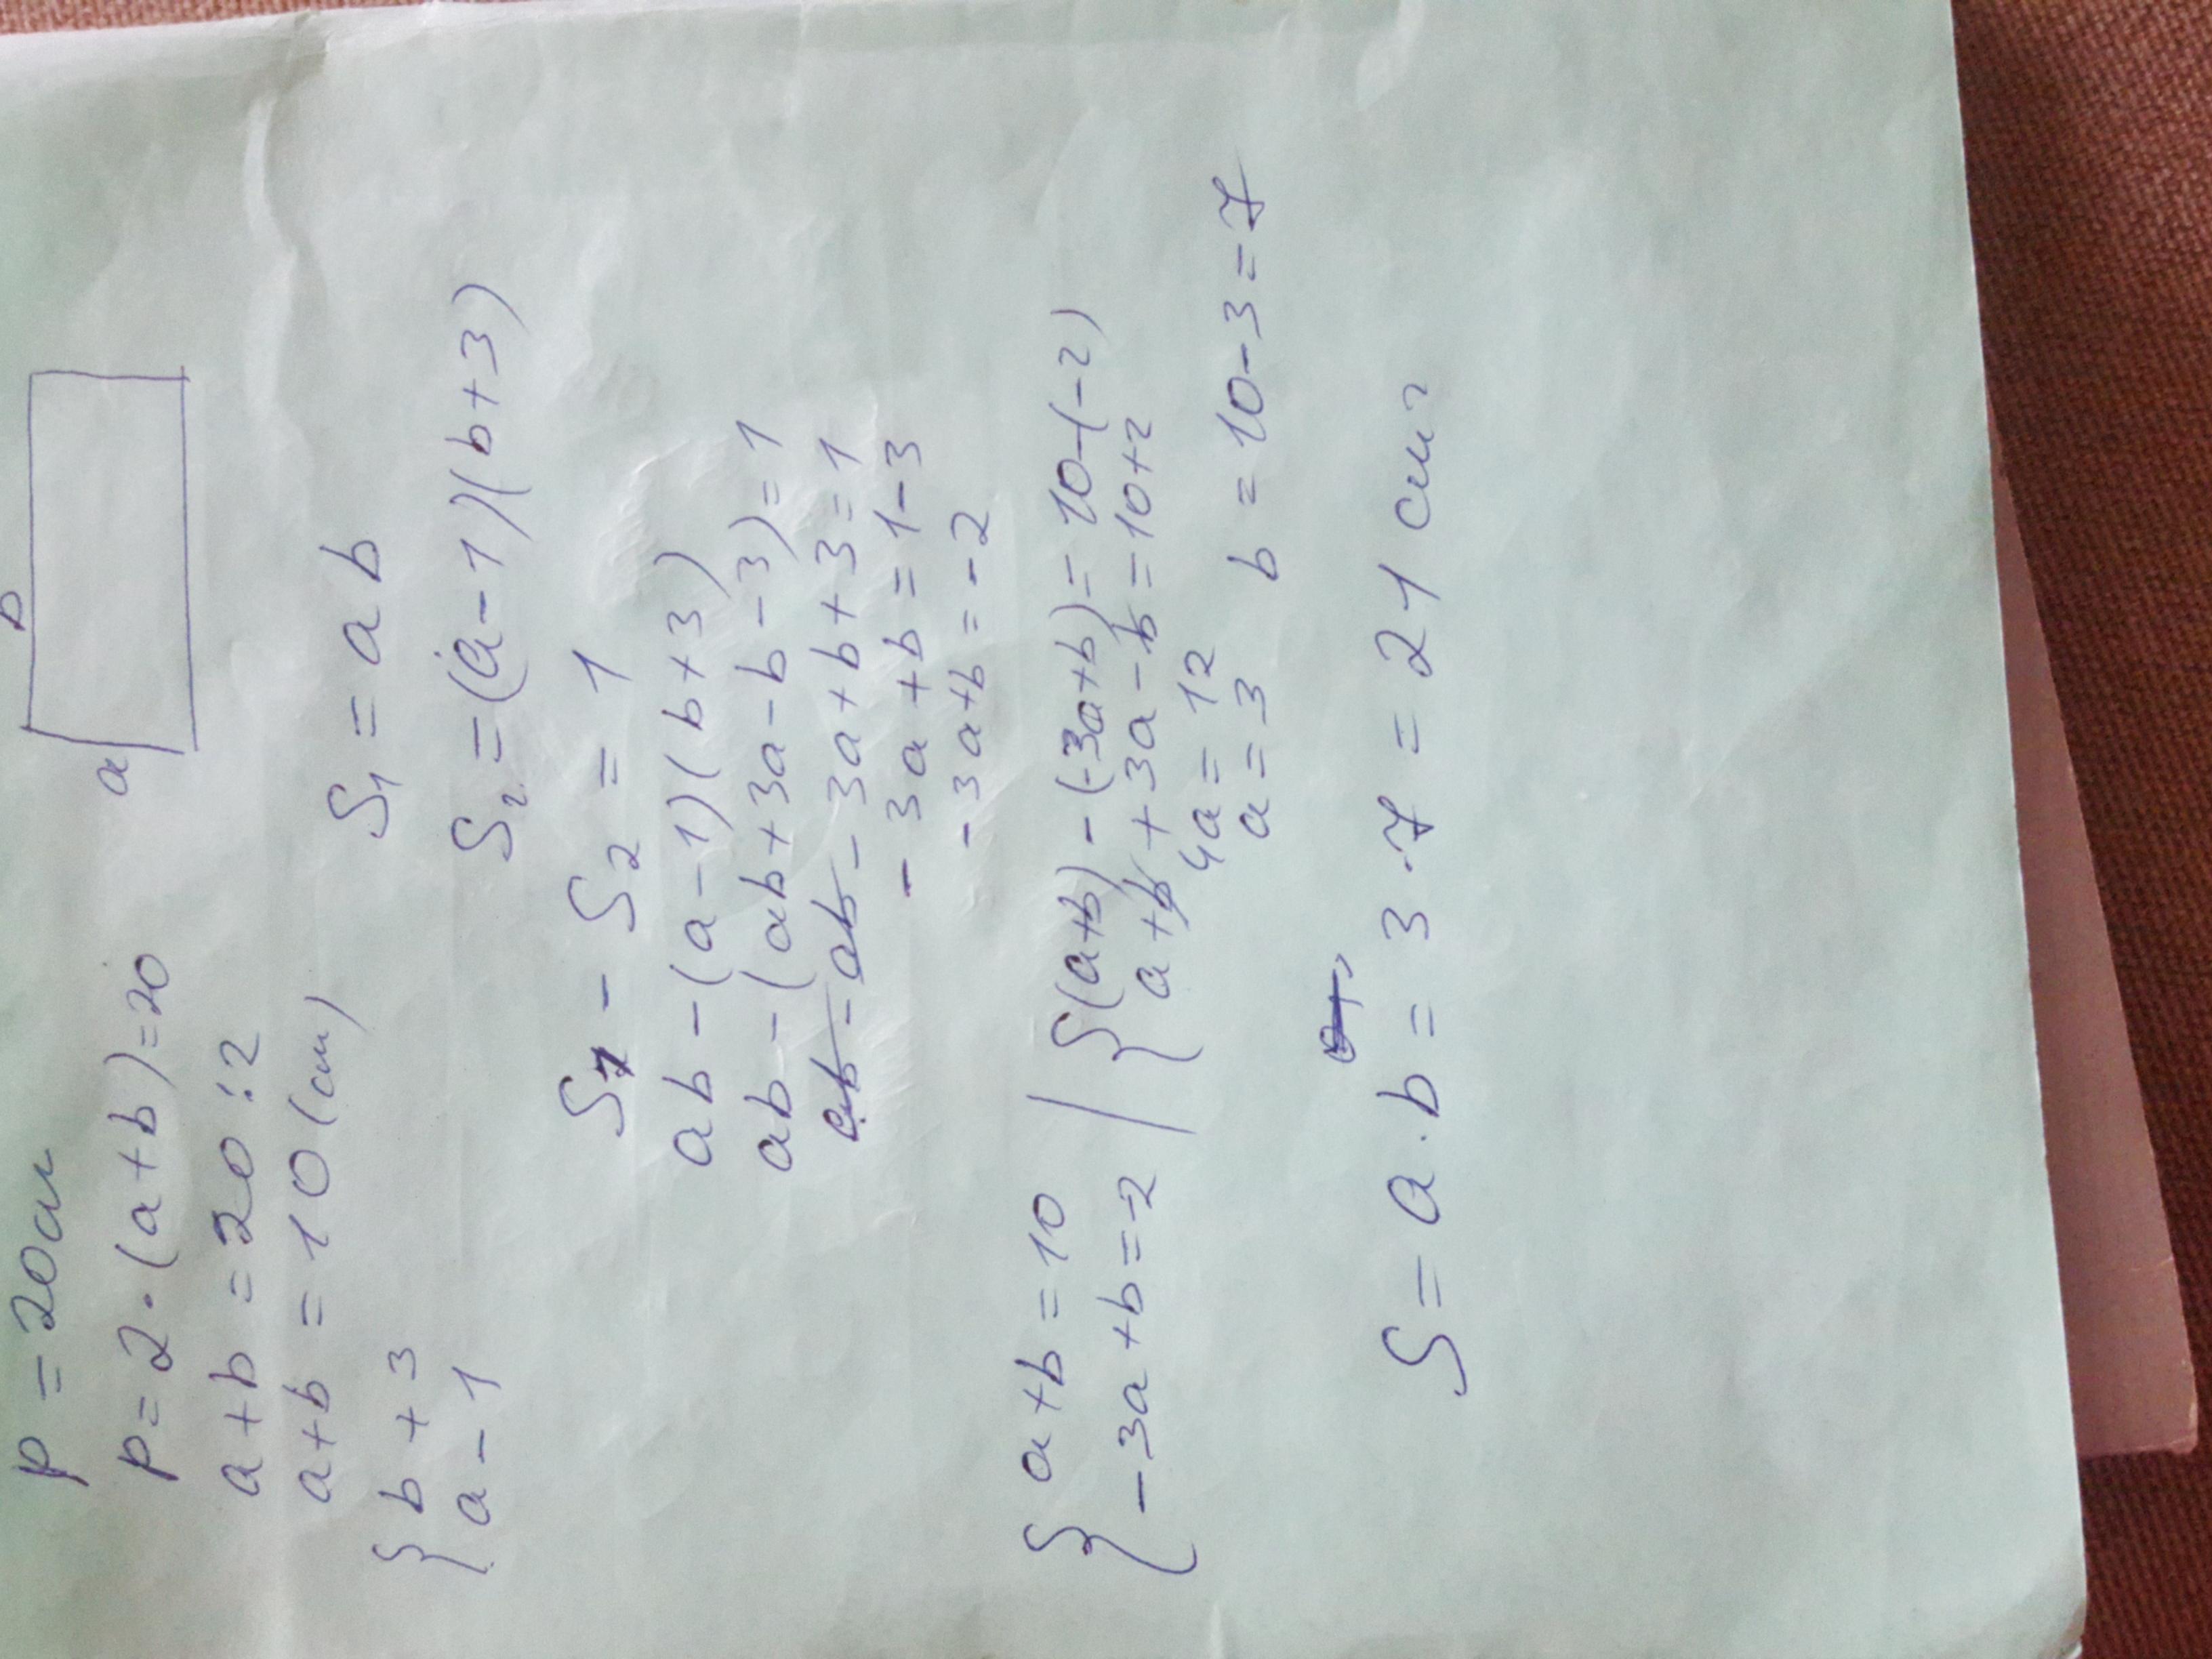 p = 20 см
p = 2 · (a + b) = 20
a + b = 20 : 2
a + b = 10 (см)
b
a
{ b + 3
a - 1
S₁ = a b
S₂ = (a - 1)(b + 3)
S₁ - S₂ = 1
ab - (a - 1)(b + 3)
ab - (ab + 3a - b - 3) = 1
ab - ab - 3a + b + 3 = 1
- 3a + b = 1 - 3
- 3a + b = - 2
{ a + b = 10
- 3a + b = -2
{ (a + b) - (-3a + b) = 10 - (-2)
a + b + 3a - b = 10 + 2
4a = 12
a = 3
b = 10 - 3 = 7
S = a · b = 3 · 7 = 21 см²